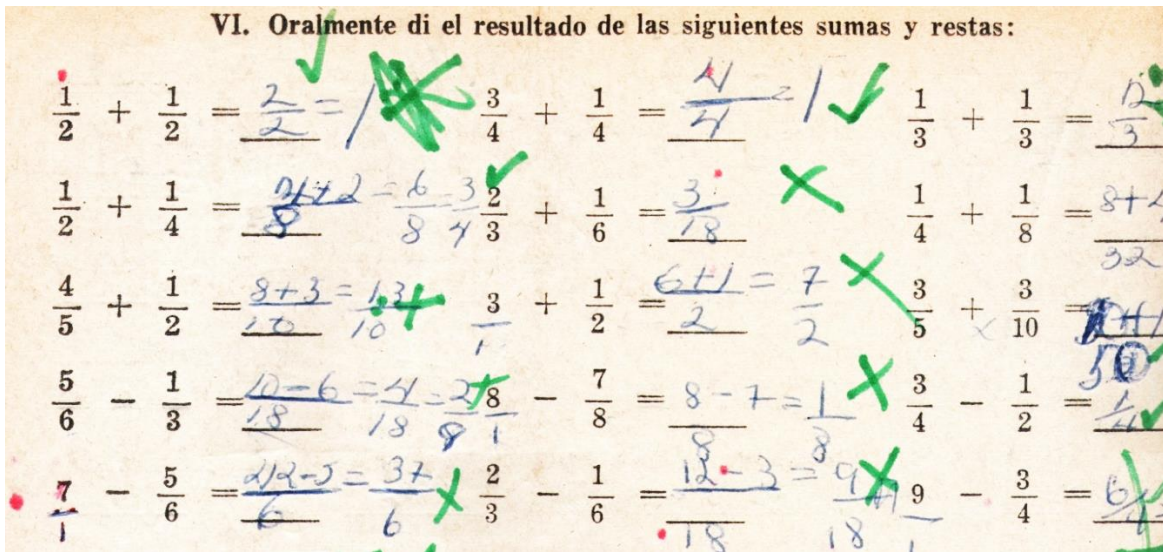 VI. Oralmente di el resultado de las siguientes sumas y restas:
1/2 + 1/2 = 2/2 = 1 3/4 + 1/4 = 4/4 = 1 1/3 + 1/3 = 2/3
1/2 + 1/4 = 4+2/8 = 6/8 = 3/4 2/3 + 1/6 = 3/18 1/4 + 1/8 = 8+4/32
4/5 + 1/2 = 8+3/10 = 13/10 3/1 + 1/2 = 6+1/2 = 7/2 3/5 + 3/10 =
5/6 - 1/3 = 10-6/18 = 4/18 = 2/8 8/1 - 7/8 = 8-7/8 = 1/8 3/4 - 1/2 = 1/4
7/1 - 5/6 = 42-5/6 = 37/6 2/3 - 1/6 = 12-3/18 = 9/18 9/1 - 3/4 =